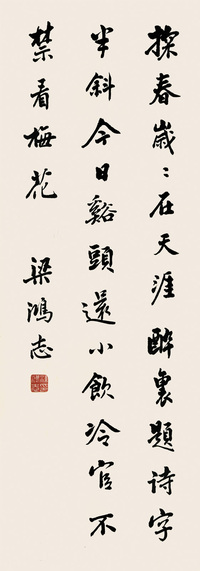 探春歲ミ在天涯醉裏題诗字
半斜今日谿頭還小飲冷官不
禁看梅花
梁鴻志